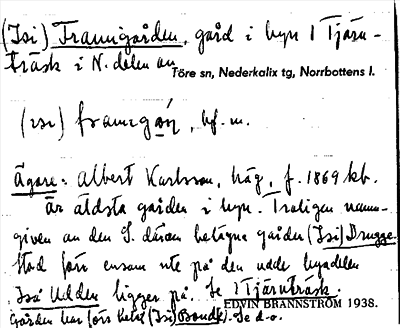 (Isi) Framigården, gård i byn I Tjärn-
träsk i N. delen av
Töre sn, Nederkalix tg, Norrbottens l.
(isi) framıgań, bf. m.
Ägare: Albert Karlsson, häg., f. 1869 kb.
Är äldsta gården i byn. Troligen namn-
given av den S. därom belägna gården (Isi) Brugge.
Stod förr ensam ute på den udde byadelen
Isä Udden ligger på. Se I Tjärnträsk.
EDVIN BRÄNNSTRÖM 1938.
Gården har förr hetat (Isi) Se d.o.